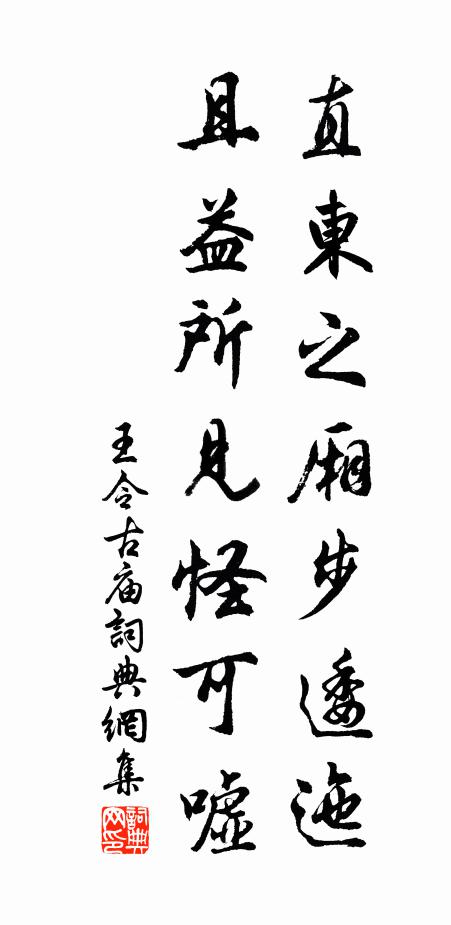 直東之厢步逶迤
且益所見怪可嘘
王令古庙詞典網集
詞典网印